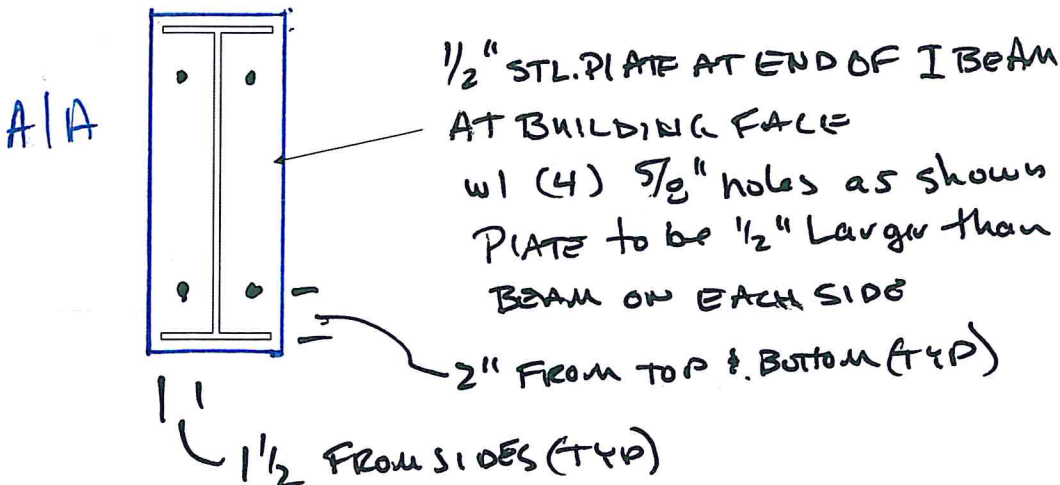 A|A
1/2" STL. PLATE AT END OF I BEAM
AT BUILDING FACE
w/ (4) 5/8" holes as shown
PLATE to be 1/2" Larger than
BEAM ON EACH SIDE
2" FROM TOP & BOTTOM (TYP)
1 1/2 FROM SIDES (TYP)